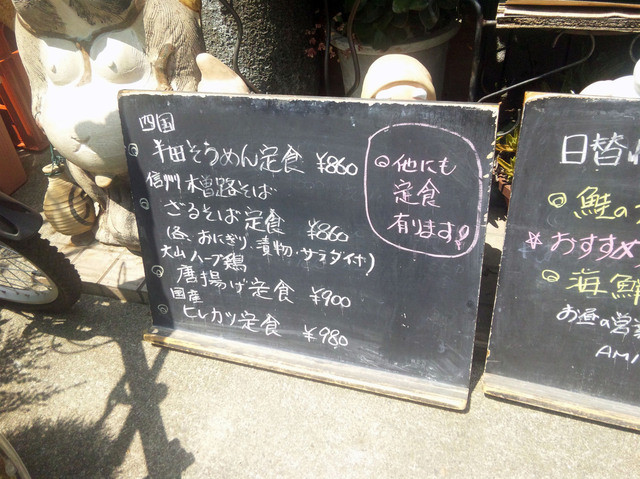 四国
◎半田そうめん定食 ¥860
信州木曽路そば
◎ざるそば定食 ¥860
(各、おにぎり、漬物、サラダ付)
大山ハーブ鶏
◎唐揚げ定食 ¥900
国産
◎ヒレカツ定食 ¥980
◎他にも
定食
有ります!
日替
◎鮭の
☆おすす
◎海鮮
お昼の営業
AM